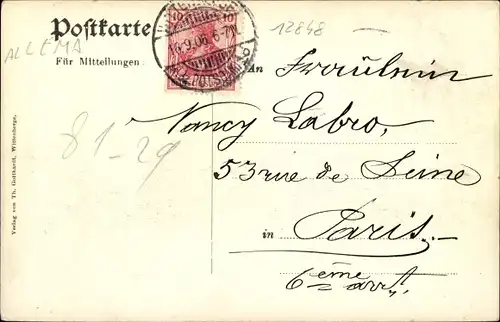 Postkarte
12848
ALLEMA
Für Mitteilungen
16.9.06.6-7N
An Fräulein
Nancy Labro,
53 rue de Seine
in Paris.
6ème arrt.
81-29
Verlag von Th. Gotthardt, Wittenberge.